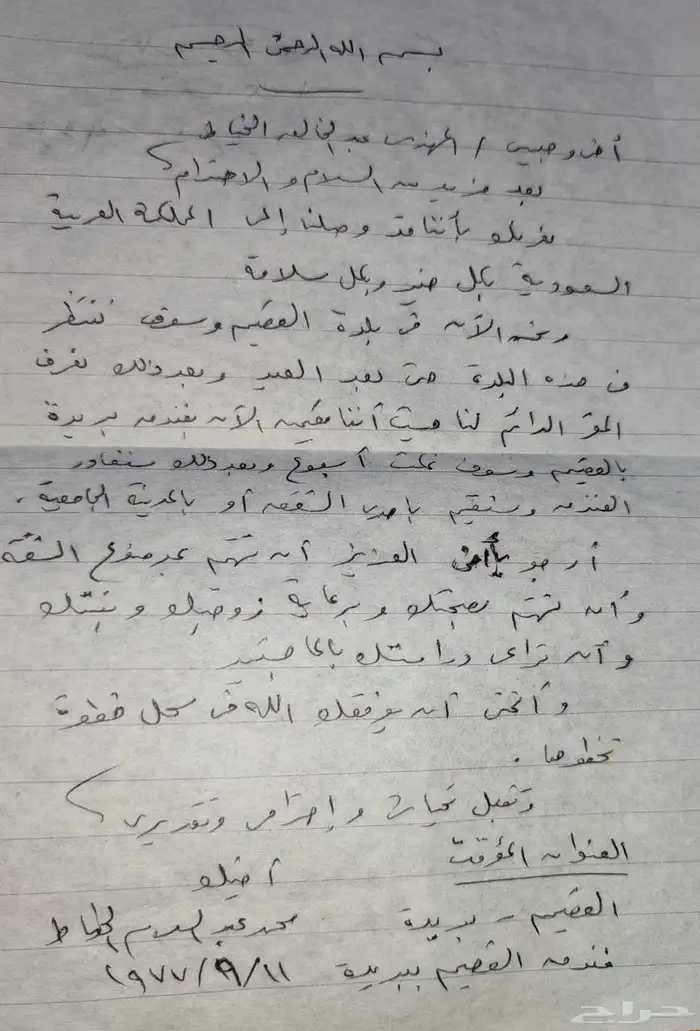 بسم الله الرحمن الرحيم
أخى وحبيبى / المهندس عبد الخالق الخياط
بعد مزيد من السلام و الاحترام
نعرفك بأننا قد وصلنا إلى المملكة العربية
السعودية بكل خير وبكل سلامة
ونحن الآن فى بلدة القصيم وسوف ننتظر
فى هذه البلدة حتى بعد العيد وبعد ذلك نعرف
المقر الدائم لنا حيث أننا مقيمين الآن بفندق بريدة
بالقصيم وسوف نمكث أسبوع وبعد ذلك سنغادر
الفندق وسنقيم بإحدى الشقق أو بالمدينة الجامعية .
أرجو يا أخى العزيز أن تهتم بموضوع الشقة
وأن تهتم بصحتك وبرعاية زوجتك وبنتك
وأن تراعى دراستك بالماجستير
وأتمنى أن يوفقك الله فى كل خطوة
تخطوها .
وتقبل تحياتى وإحترامى وتقديرى
العنوان المؤقت
أخيك
القصيم - بريدة
محمد عبد السلام الخياط
فندق القصيم ببريدة
١٩٧٧/٩/١١
حراج